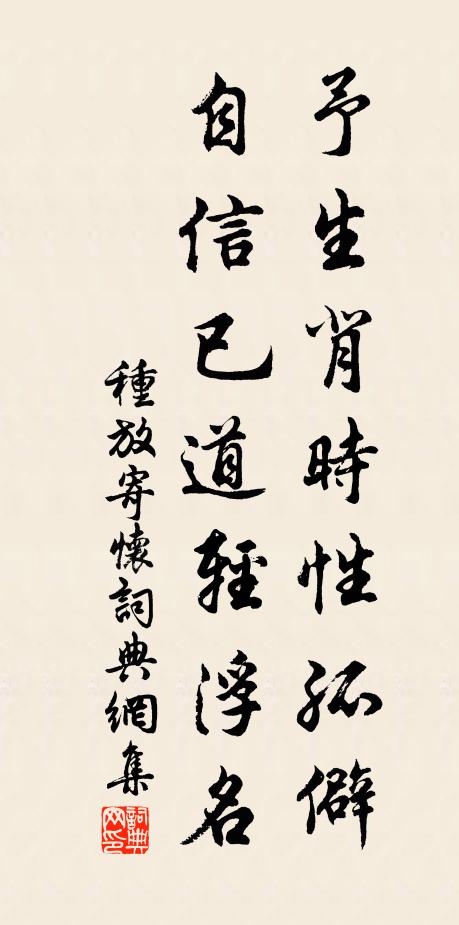 予生背時性孤僻
自信已道輕浮名
種放寄懷詞典網集
詞典網印